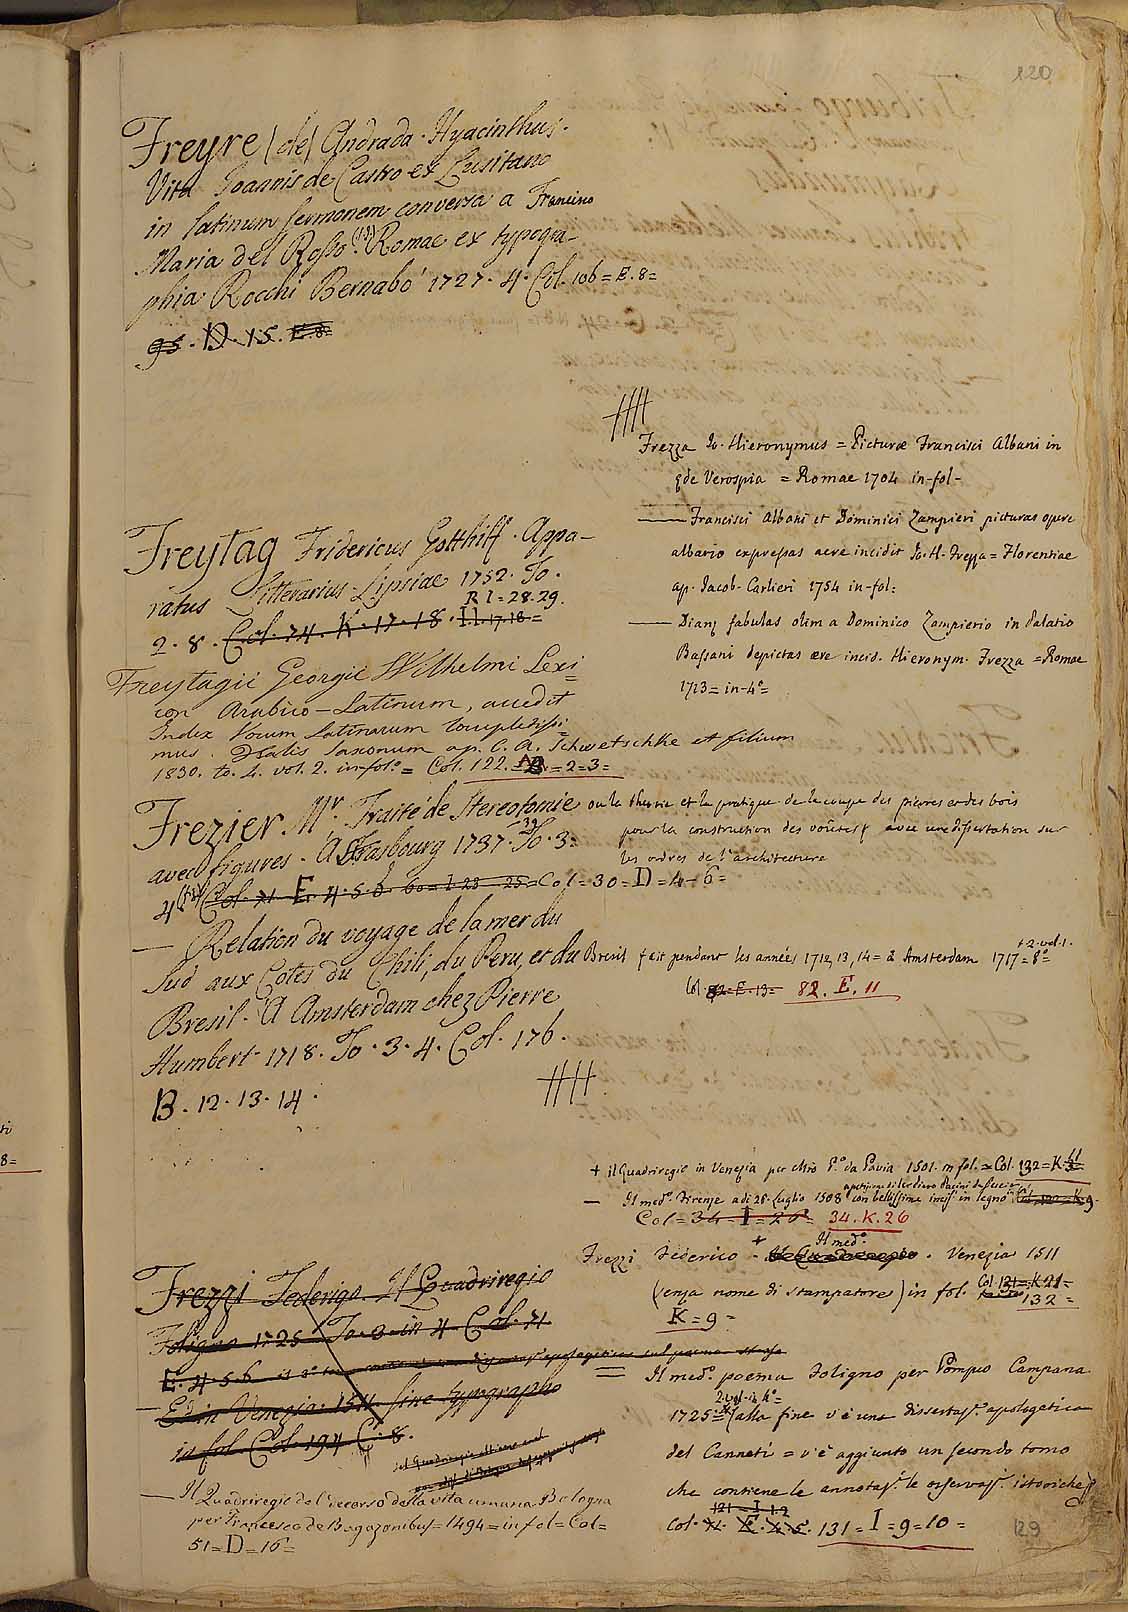 120
Freyre (de) Andrada Hyacinthus.
Vita Joannis de Castro ex Lusitano
in latinum sermonem conversa a Francisco
Maria del Rosso. Romae ex typogra-
phia Rocchi Bernabò 1727. 4. Col. 106 = E. 8 =
95. D. 15. E. 8 =
Frezza Jo. Hieronymus = Picturæ Francisci Albani in
ęde Verospia = Romae 1704 in-fol-
— Francisci Albani et Dominici Zampieri picturas opere
albario expressas aere incidit Jo. H. Frezza = Florentiae
ap. Jacob. Carlieri 1754 in-fol:
— Dianę fabulas olim a Dominico Zampierio in Palatio
Bassani depictas ære incid. Hieronym. Frezza = Romae
1713 = in-4° =
Freytag Fridericus Gotthilff. Appa-
ratus Litterarius Lipsiae 1752. To.
R I = 28. 29.
2. 8. Col. 74. K. 17. 18. I I. 17. 18 =
Freytagii Georgii Wilhelmi Lexi
con Arabico-Latinum, accedit
Index Vocum Latinarum locupletissi-
mus. Halis Saxonum ap. C. A. Schwetschke et filium
1830. to. 4. vol. 2. in-fol.° = Col. 122. = B = 2 = 3 =
Frezier Mr. Traité de Stereotomie ou la theorie et la pratique de la coupe des pierres et des bois
pour la construction des voûtes & avec une dissertation sur
les ordres de l'architecture
avec figures. A Strasbourg 1737-39 To. 3.
4 Col. 71. E. 4. 5. 6. 60 = I 23 25 = Col = 30 = D = 4 - 6 =
— Relation du voyage de la mer du
Sud aux Cotes du Chili, du Peru, et du Bresil fait pendant les années 1712, 13, 14 = à Amsterdam 1717 = 8° =
+ 2. vol. 1.
Col. 82 = E. 13 = 82. E. 11
Bresil. A Amsterdam chez Pierre
Humbert 1718. To. 3. 4. Col. 176.
B. 12. 13. 14.
+ il Quadriregio in Venezia per Mro P.° da Pavia 1501. in fol. = Col. 132 = K
— Il med.° Firenze adi 26. Luglio 1508 con bellissime incis. in legno Col. 132 = K 9.
Col = 34 = I = 26 = 34. K. 26
Frezzi Federico - Il med.° Il Quadriregio. Venezia 1511
(senza nome di stampatore) in fol. Col. 131 = K 21 =
132 =
K = 9 =
Frezzi Federigo. Il Quadriregio
Foligno 1725. To. 2. in 4. Col. 71.
E. 4. 5. 6
— Ed in Venezia. 1511. sine typographo
in fol. Col. 194 C. 8.
= Il med.° poema Foligno per Pompeo Campana
2. vol. in 4° =
1725 = (alla fine v'è una dissertaz. apologetica
del Canneti = v'è aggiunto un secondo tomo
che contiene le annotaz. le osservaz. istoriche &
121 = I. 1. 2
Col. 71. E. 4. 5. 131 = I = 9 = 10 =
— Il Quadriregio del decorso della vita umana Bologna
per Francesco de Ragazonibus = 1494 = in fol = Col =
51 = D = 16 =
129